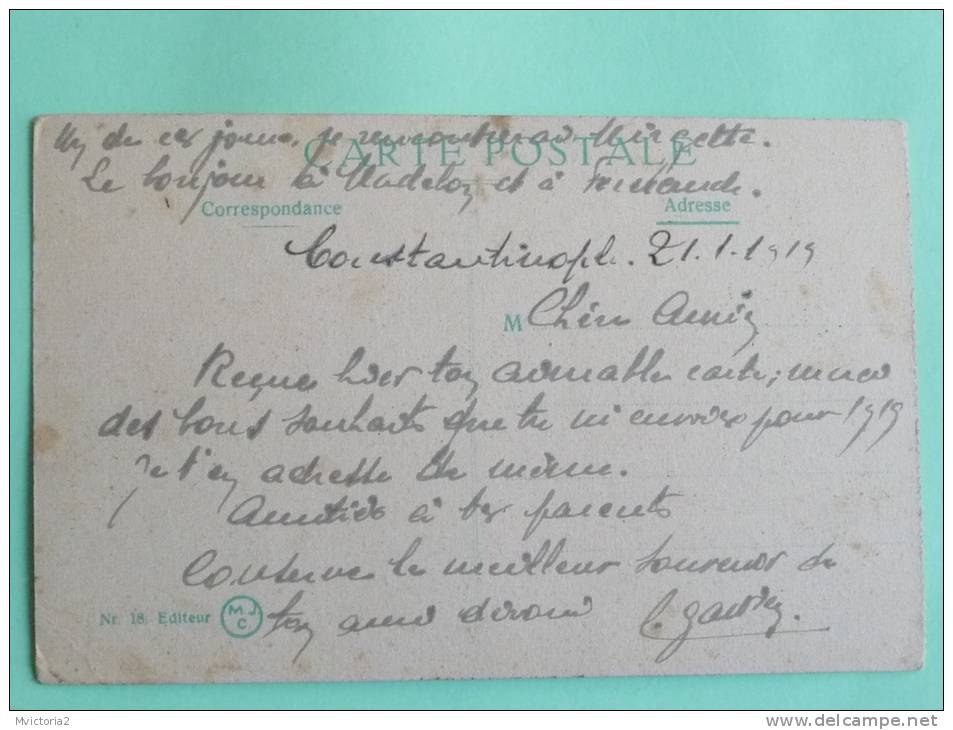 Un de ces jours, je rencontrerai Mingette.
CARTE POSTALE
Le bonjour à Madelon et à Fernande.
Correspondance
Adresse
Constantinople. 21.1.1919
M Chère Amie
Reçue hier ton aimable carte; merci
des bons souhaits que tu m'envoies pour 1919
Je t'en adresse de même.
Amitiés à tes parents
Conserve le meilleur souvenir de
ton ami dévoué
Nr. 18. Editeur M J C
Mvictoria2
www.delcampe.net